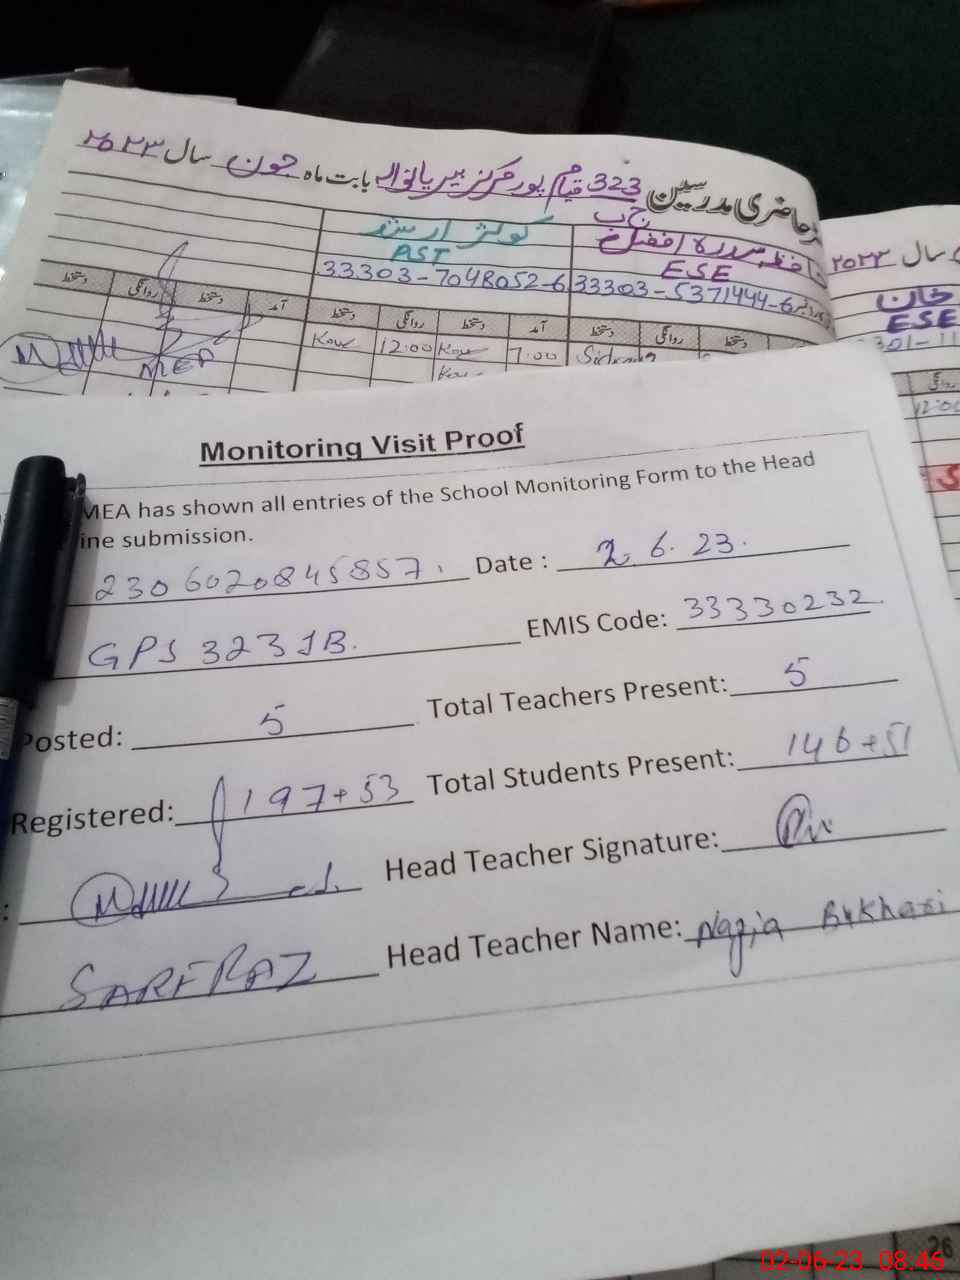 حاضری مدرسین 323 ج ب قیام پور مرکز بیریانوالہ بابت ماہ جون سال ۲۰۲۳
سال ۲۰۲۳
کوثر ارشد
سدرہ افضل
خان
PST
ESE
ESE
33303-7048052-6
33303-5371444-6
301-11
دستخط روانگی دستخط آمد دستخط روانگی دستخط آمد دستخط روانگی دستخط
روانگی
12:00
7:00
12:00
Monitoring Visit Proof
MEA has shown all entries of the School Monitoring Form to the Head
ine submission.
2306020845857. Date : 2.6.23.
GPS 323 JB. EMIS Code: 33330232
Posted: 5 Total Teachers Present: 5
Registered: 197+53 Total Students Present: 146+51
: Head Teacher Signature:
SARFRAZ Head Teacher Name: Nazia Bukhari
26
02-06-23 08:46